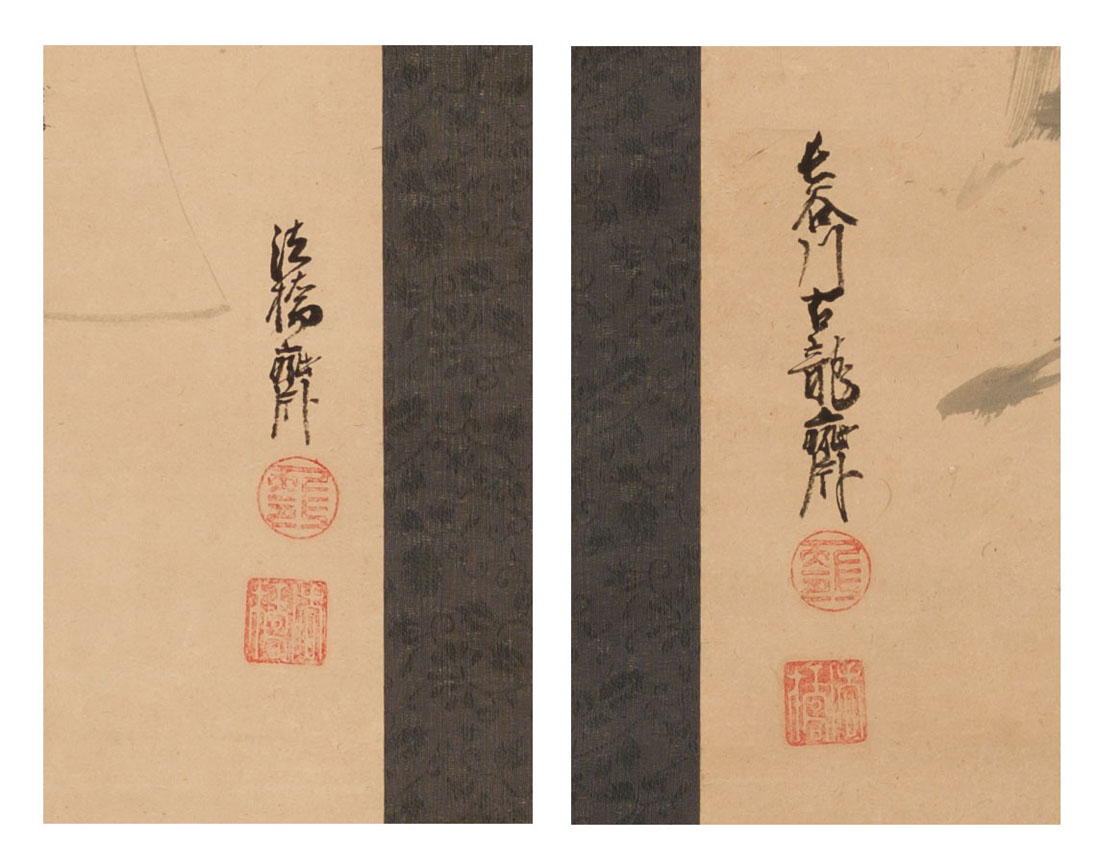 法橋齋
法橋
長谷川古龍齋
法橋